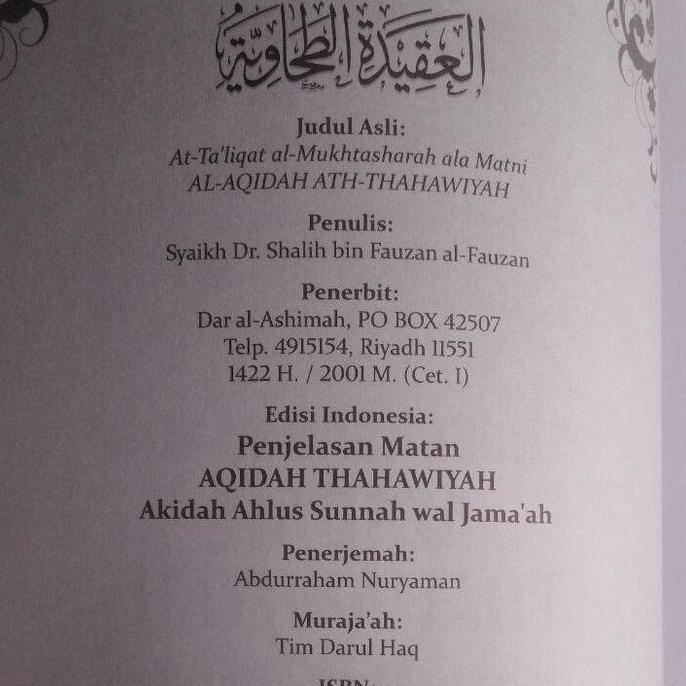 العَقِيْدَةِ الطَّحَاوِيَّةِ
Judul Asli:
At-Ta'liqat al-Mukhtasharah ala Matni
AL-AQIDAH ATH-THAHAWIYAH
Penulis:
Syaikh Dr. Shalih bin Fauzan al-Fauzan
Penerbit:
Dar al-Ashimah, PO BOX 42507
Telp. 4915154, Riyadh 11551
1422 H. / 2001 M. (Cet. I)
Edisi Indonesia:
Penjelasan Matan
AQIDAH THAHAWIYAH
Akidah Ahlus Sunnah wal Jama'ah
Penerjemah:
Abdurraham Nuryaman
Muraja'ah:
Tim Darul Haq
ISBN: